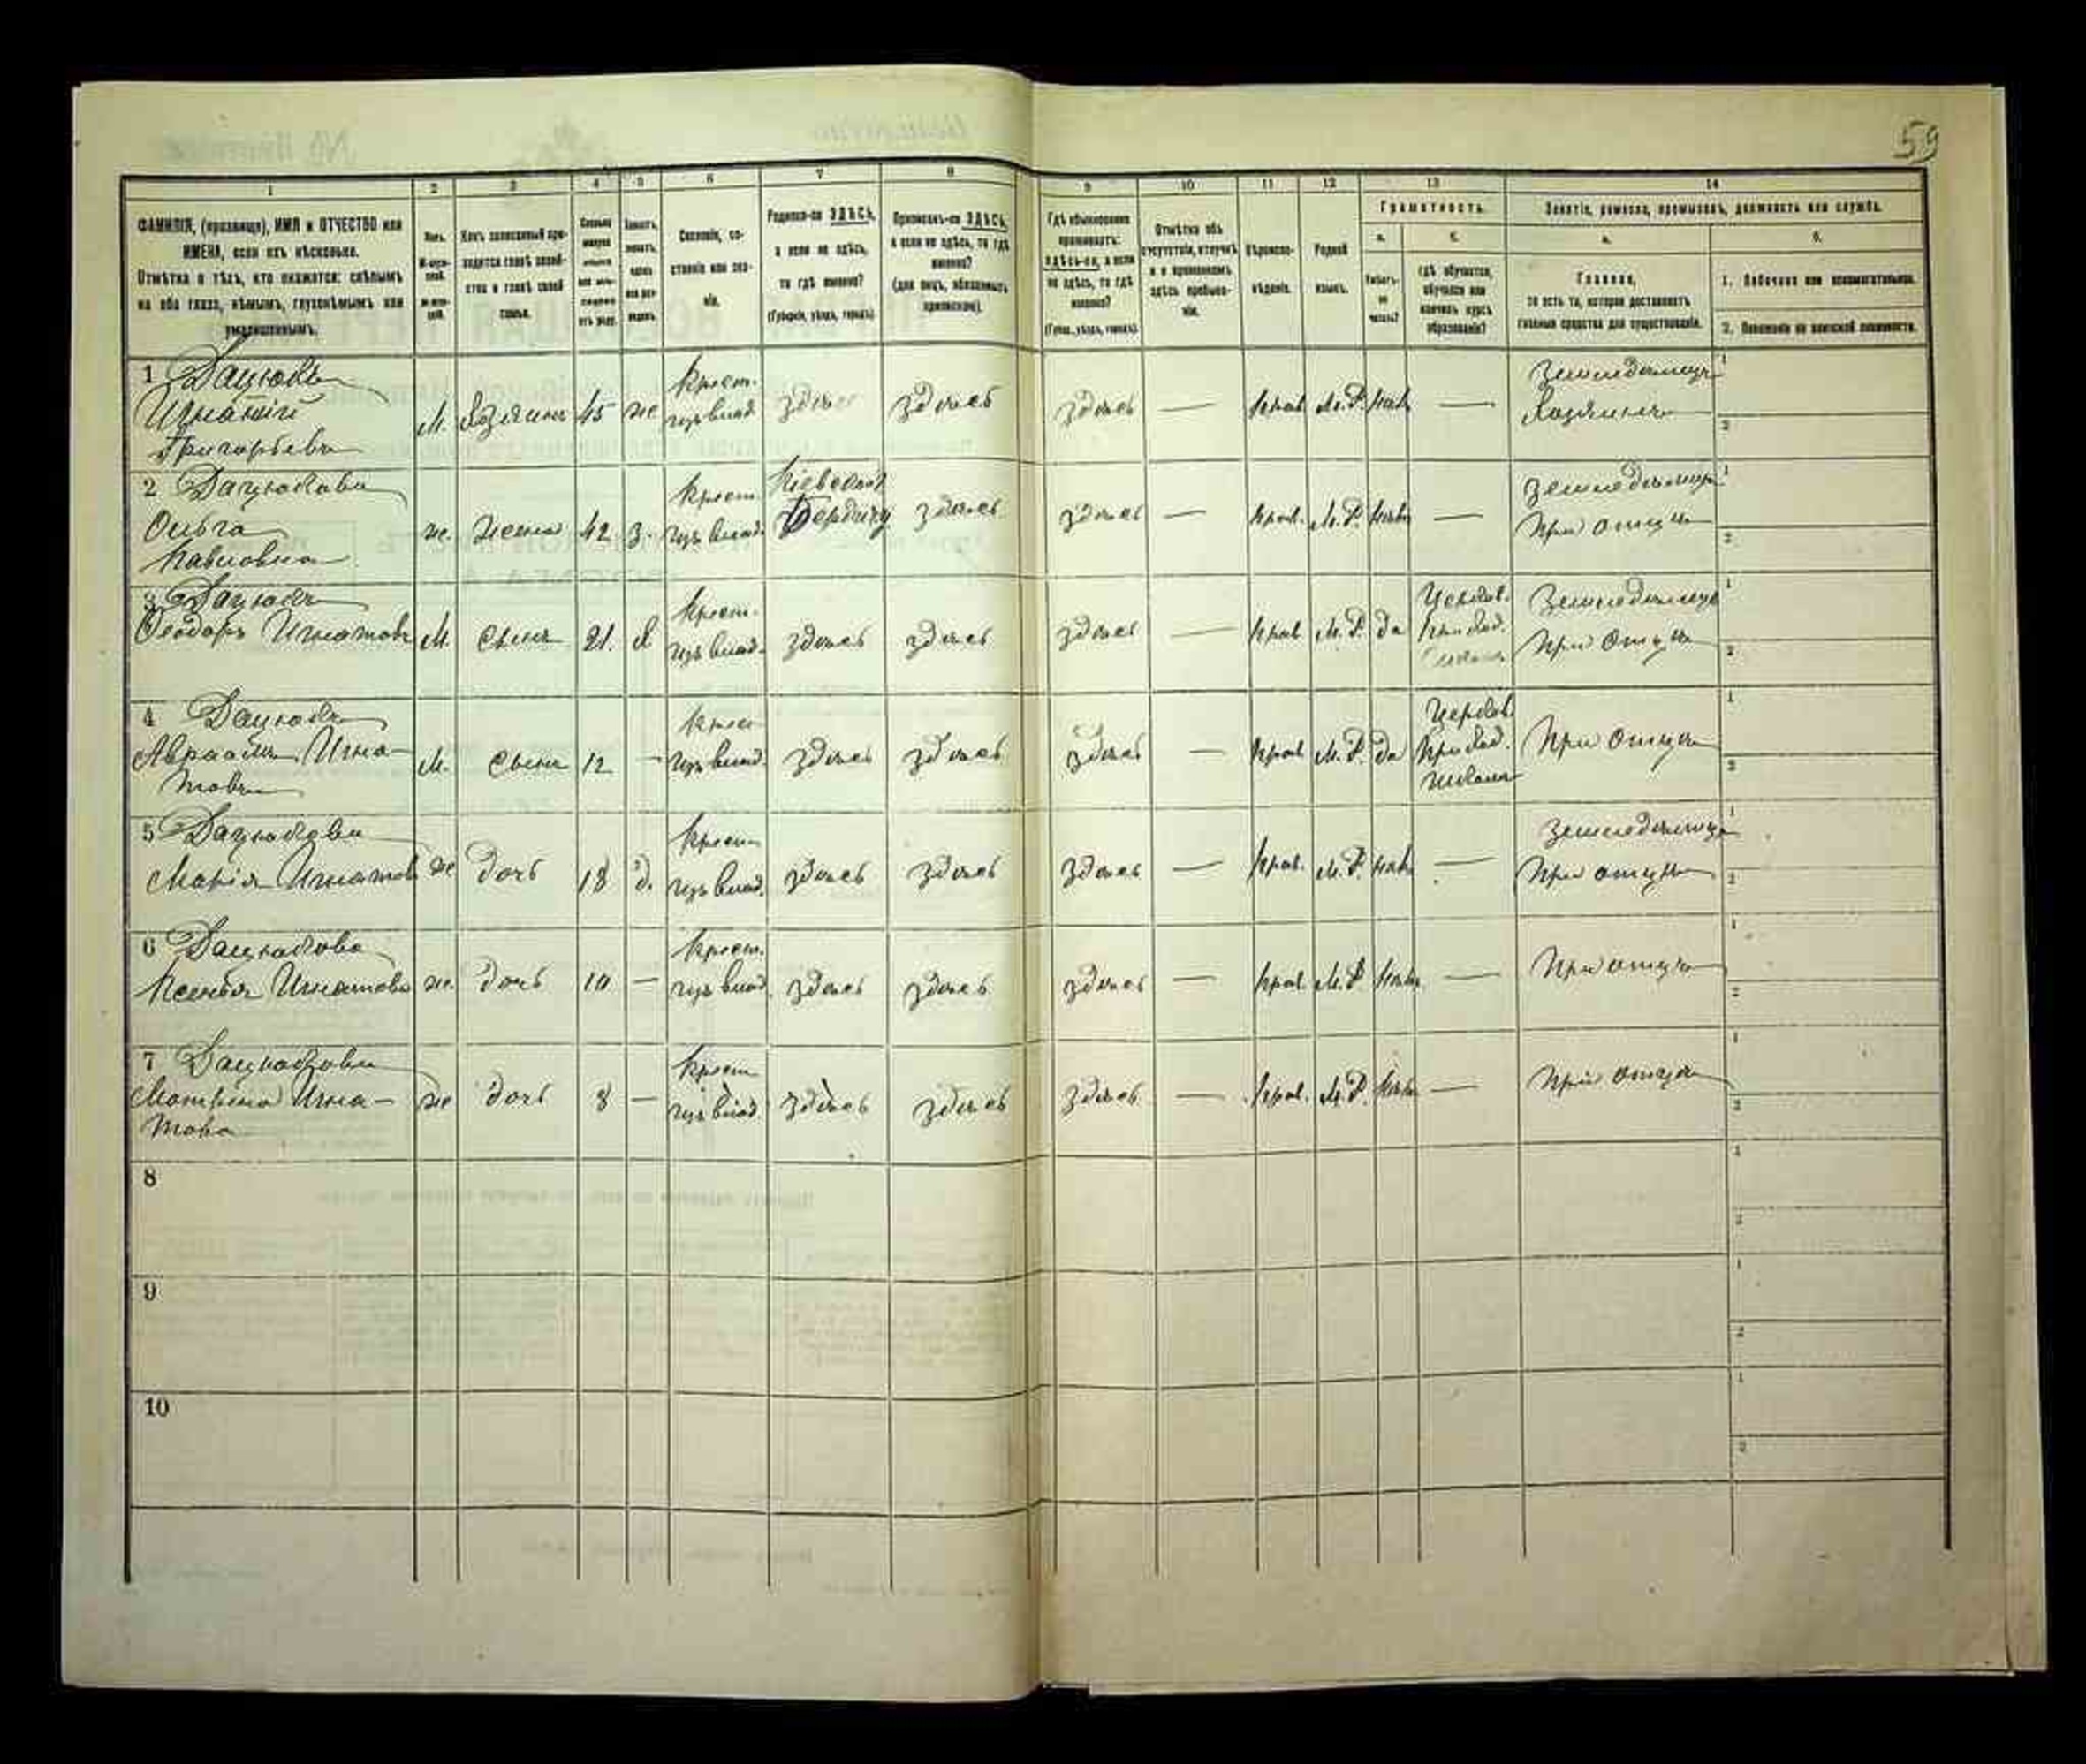 59
1 2 3 4 5 6 7 8 9 10 11 12 13 14
ФАМИЛІЯ, (прозвище), ИМЯ и ОТЧЕСТВО или
ИМЕНА, если ихъ нѣсколько.
Отмѣтка о тѣхъ, кто окажется: слѣпымъ
на оба глаза, нѣмымъ, глухонѣмымъ или
умалишеннымъ.
Полъ.
Какъ записанный при-
ходится главѣ хозяй-
ства и главѣ своей
семьи.
Сословіе, со-
стояніе или зва-
ніе.
Родился-ли ЗДѢСЬ,
а если не здѣсь,
то гдѣ именно?
(Губернія, уѣздъ, городъ).
Приписанъ-ли ЗДѢСЬ,
а если не здѣсь, то гдѣ
именно?
(для лицъ, обязанныхъ
припискою).
Гдѣ обыкновенно
проживаетъ:
здѣсь-ли, а если
не здѣсь, то гдѣ
именно?
(Губерн., уѣздъ, городъ).
Отмѣтка объ
отсутствіи, отлучкѣ
и о временномъ
здѣсь пребыва-
ніи.
Вѣроиспо-
вѣданіе.
Родной
языкъ.
Грамотность.
а.
Умѣетъ-
ли
читать?
б.
гдѣ обучается,
обучался или
кончилъ курсъ
образованія?
Занятіе, ремесло, промыселъ, должность или служба.
а.
Главное,
то есть то, которое доставляетъ
главныя средства для существованія.
б.
1. Побочное или вспомогательное.
2. Положеніе по воинской повинности.
1 Дацюкъ
Игнатій
Григорьевъ
М. Хозяинъ 45 ж
Крест.
изъ влад.
здѣсь здѣсь здѣсь — Прав. М.Р. нѣтъ —
Земледѣлецъ
Хозяинъ
1
2
2 Дацюкова
Ольга
Павловна
ж. жена 42 з.
Крест.
изъ влад.
Кіевской
Бердич
здѣсь здѣсь — Прав. М.Р. нѣтъ —
Земледѣлецъ
При отцѣ
1
2
3 Дацюкъ
Феодоръ Игнатовъ
М. сынъ 21. х
Крест.
изъ влад.
здѣсь здѣсь здѣсь — Прав. М.Р. да
Церков.
Приход.
школа
Земледѣлецъ
При отцѣ
1
2
4 Дацюкъ
Авраамъ Игна-
товъ
М. сынъ 12 —
Крест
изъ влад.
здѣсь здѣсь здѣсь — Прав. М.Р. да
Церков.
Приход.
школа
При отцѣ
1
2
5 Дацюкова
Марія Игнатов
ж дочь 18 д.
Крест
изъ влад.
здѣсь здѣсь здѣсь — Прав. М.Р. нѣтъ —
Земледѣлецъ
При отцѣ
1
2
6 Дацюкова
Ксенія Игнатова
ж. дочь 10 —
Крест.
изъ влад.
здѣсь здѣсь здѣсь — Прав. М.Р нѣтъ —
При отцѣ
1
2
7 Дацюкова
Матрена Игна-
това
ж дочь 8 —
Крест
изъ влад.
здѣсь здѣсь здѣсь — Прав. М.Р. нѣтъ —
При отцѣ
1
2
8
1
2
9
1
2
10
1
2